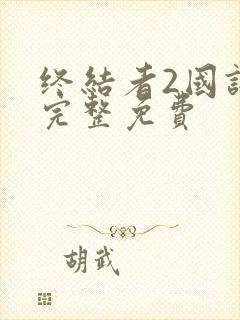 终結者2國
完整免費
胡武